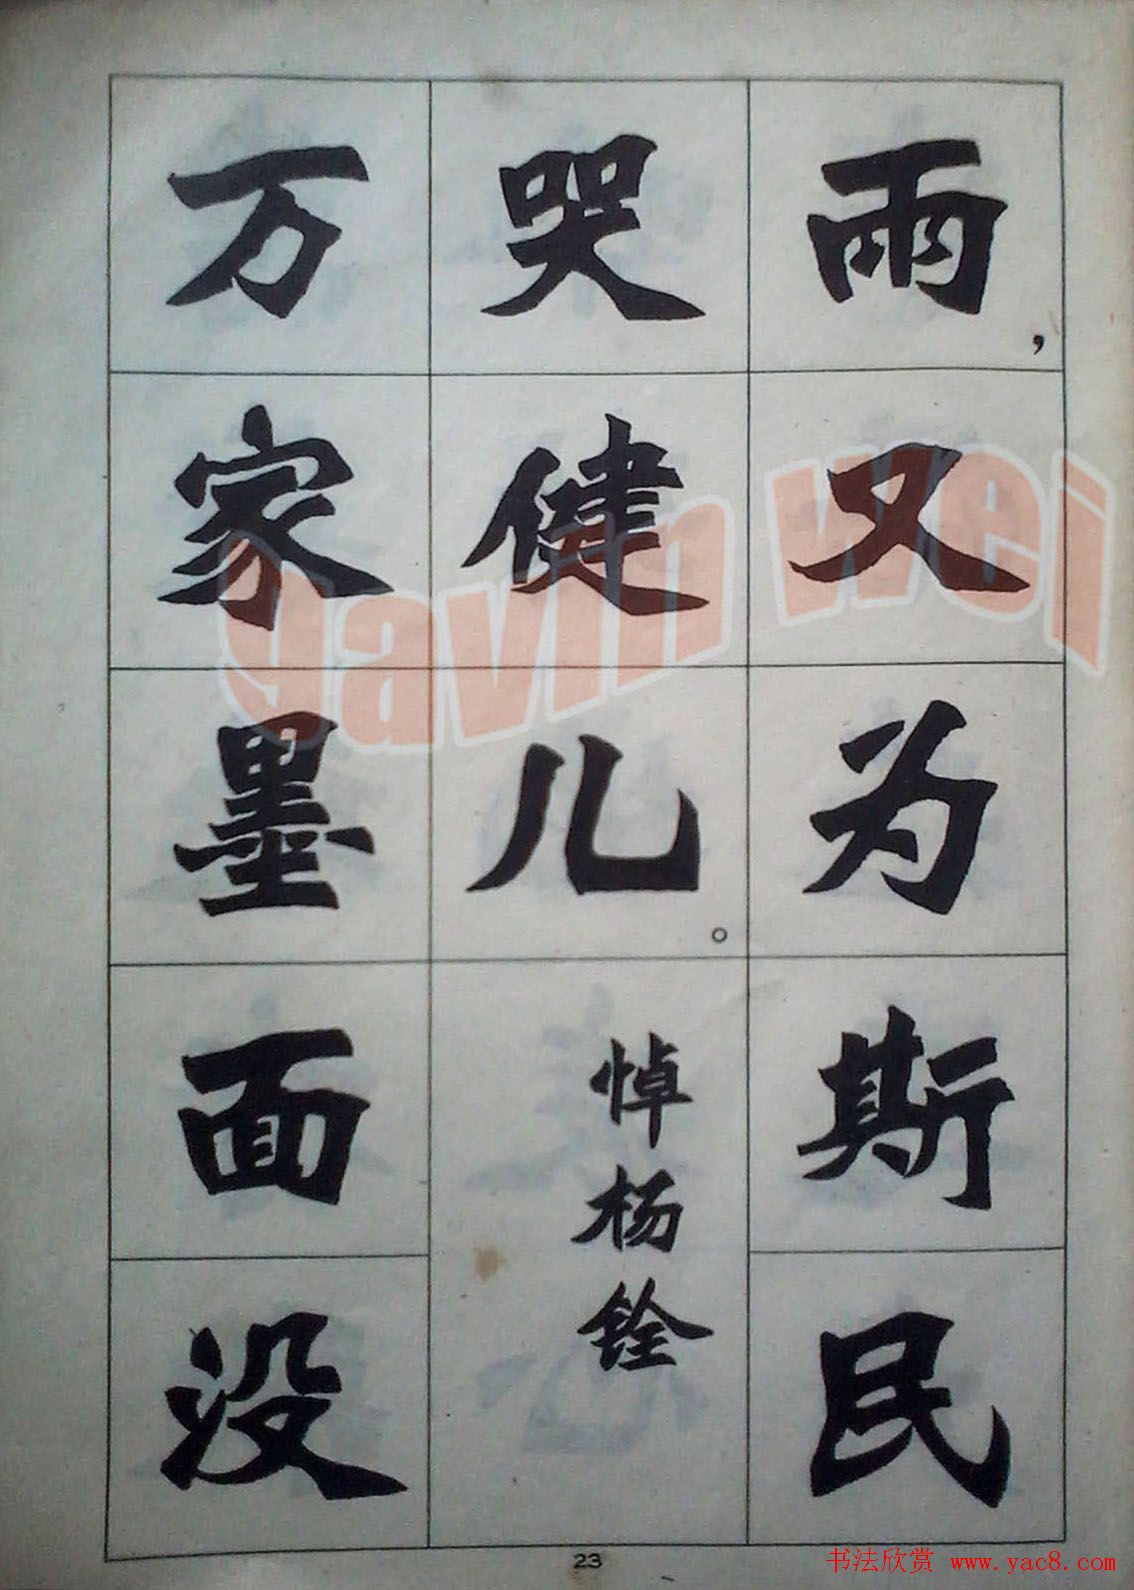 雨，又为斯民
哭健儿。
悼杨铨
万家墨面没
23
gavin wei
书法欣赏 www.yac8.com